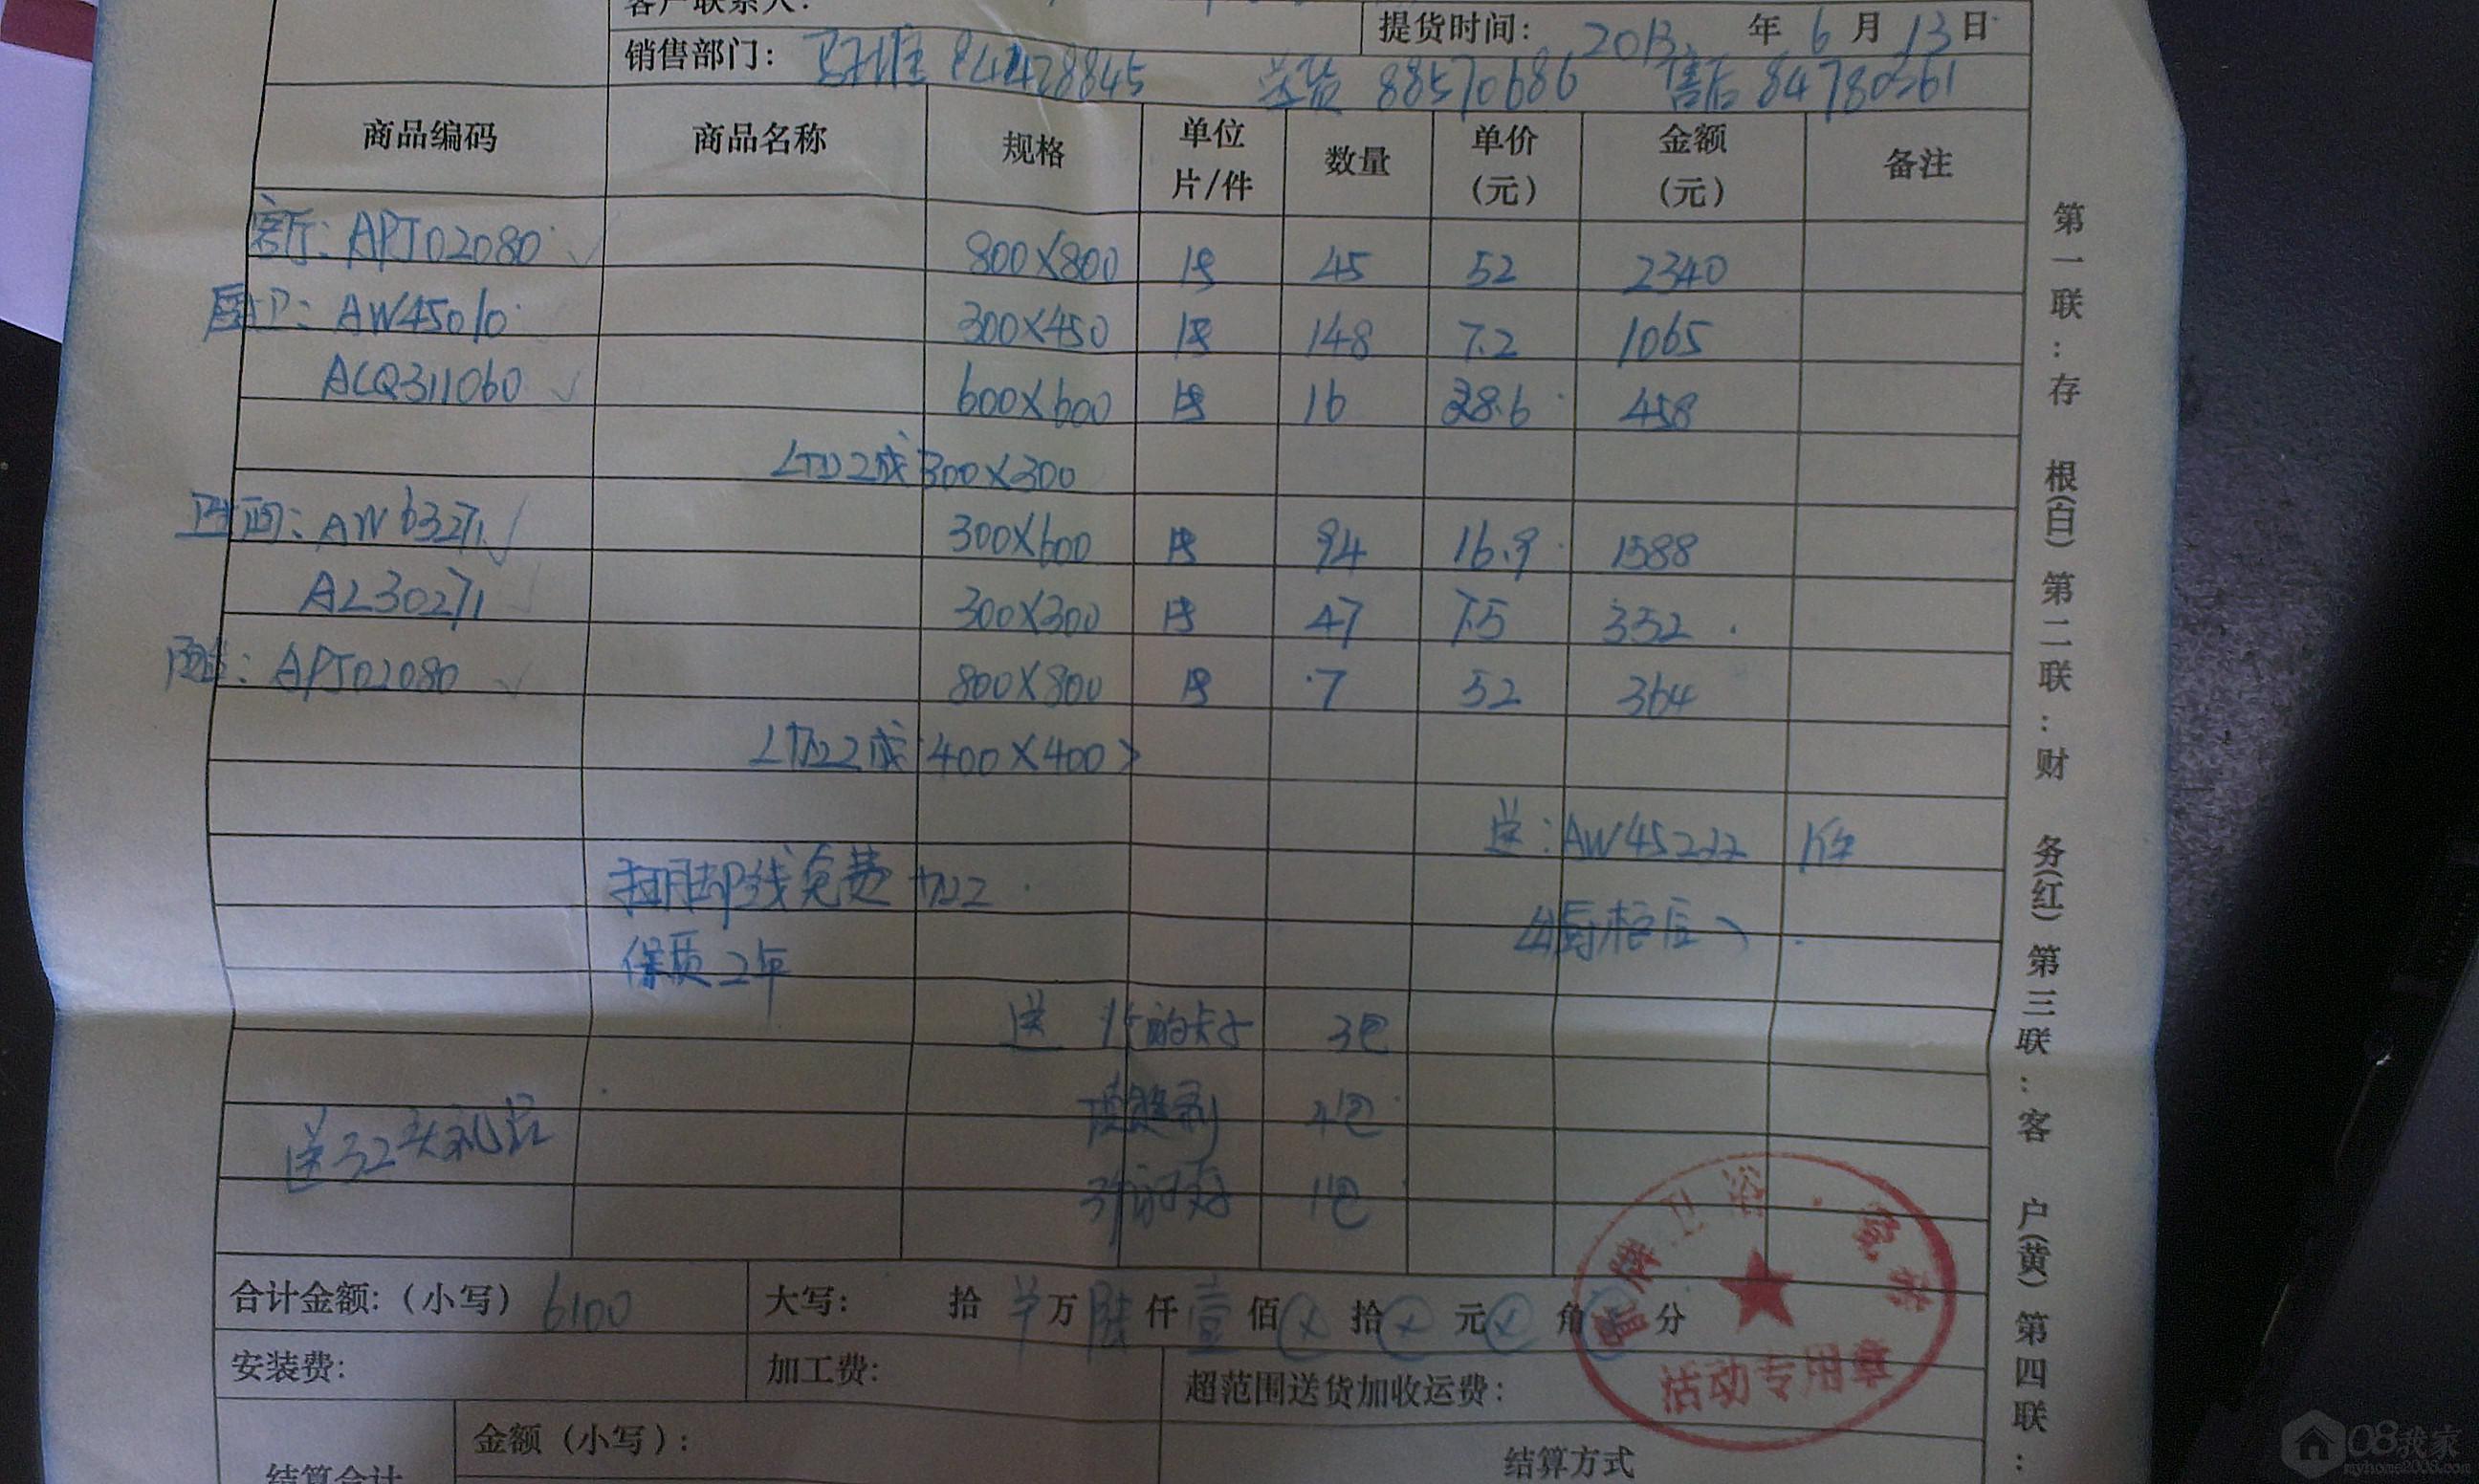 客户联系人:
提货时间: 2013 年 6 月 13 日
销售部门: 84428845 送货 88570686 售后 84780361
商品编码 商品名称 规格 单位 片/件 数量 单价 (元) 金额 (元) 备注
客厅: APJ02080 800×800 片 45 52 2340
厨卫: AW45010 300×450 片 148 7.2 1065
ACQ311060 600×600 片 16 28.6 458
加工成 300×300
AW63271 300×600 片 94 16.9 1588
AL30271 300×300 片 47 7.5 352
APJ02080 800×800 片 7 52 364
加工成 400×400
送: AW45222
踢脚线免费加工
橱柜后
保质2年
送 3包
填缝剂 4包
送32头礼品
1包
合计金额: (小写) 6100 大写: 拾 万 陆 仟 壹 佰 拾 元 角 分
安装费: 加工费: 超范围送货加收运费:
金额 (小写):
结算合计 结算方式
第一联:存根(白) 第二联:财务(红) 第三联:客户(黄) 第四联:
卫浴
活动专用章
08我家
myhome2008.com